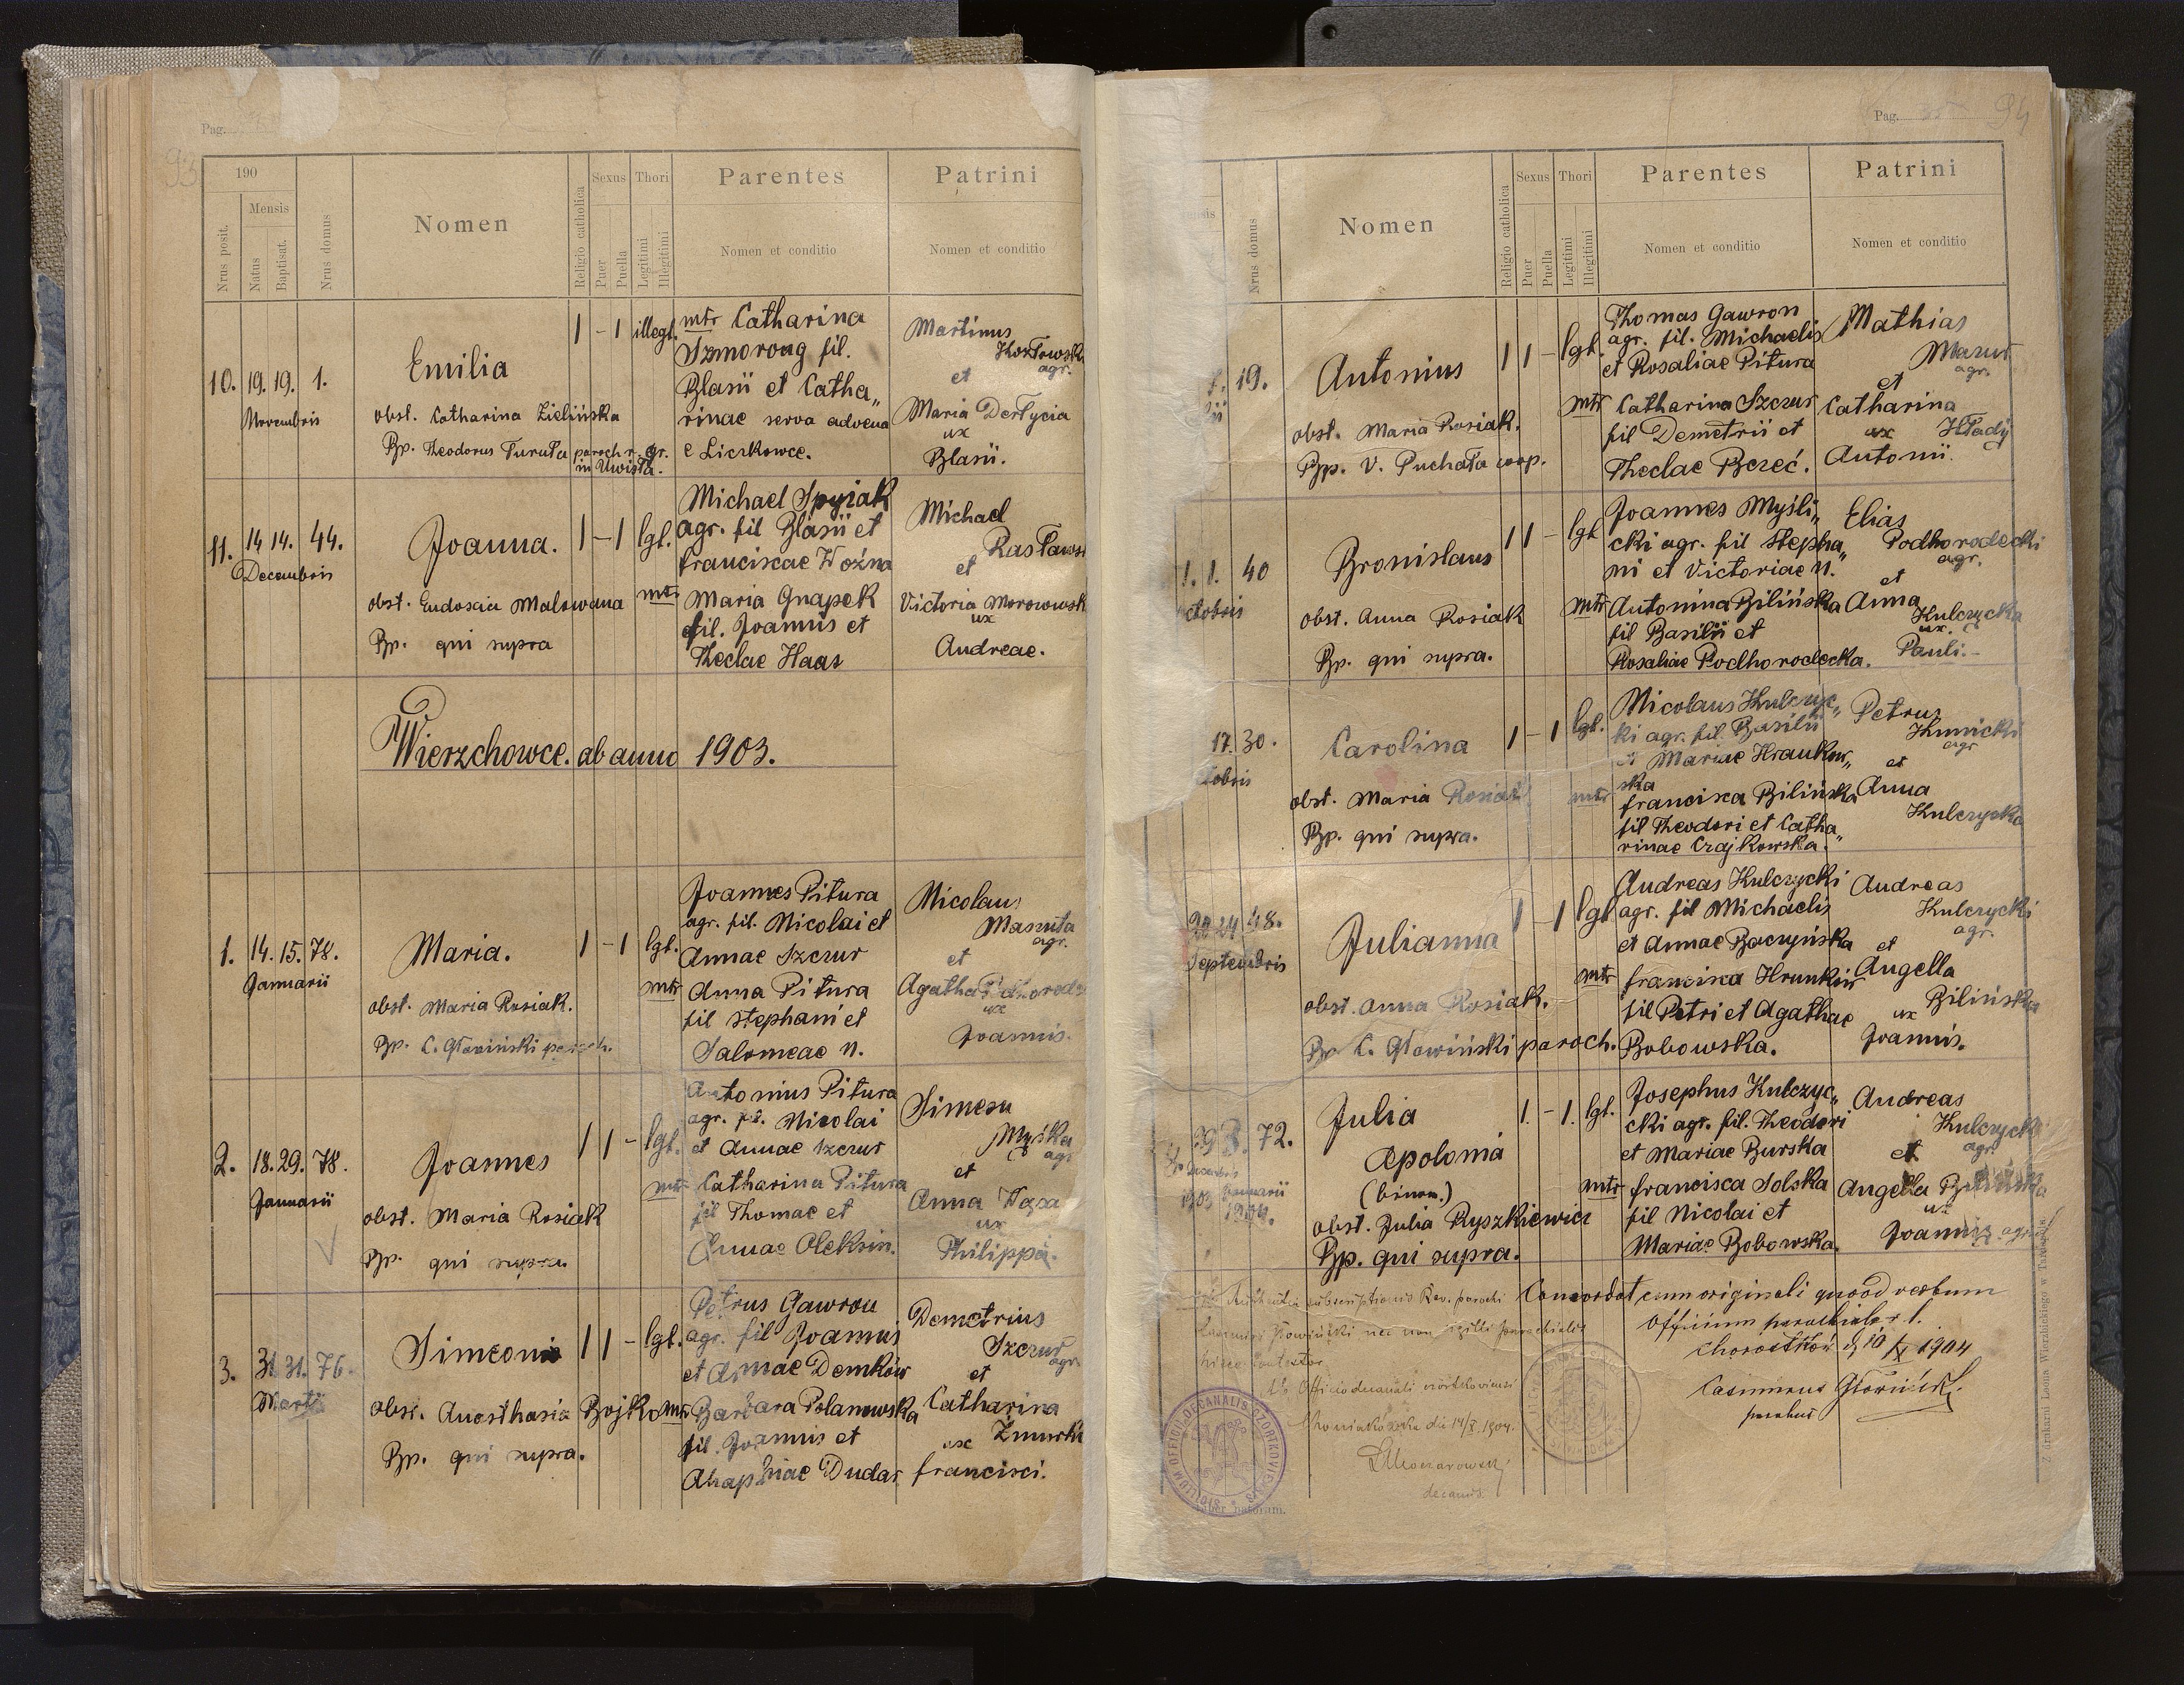 Pag.
93
190
Mensis
Nrus posit.
Natus
Baptisat.
Nrus domus
Nomen
Religio catholica
Sexus
Puer
Puella
Thori
Legitimi
Illegitimi
Parentes
Nomen et conditio
Patrini
Nomen et conditio
10. 19. 19. 1.
Novembris
Emilia
obst. Catharina Zielińska
Bp. Theodorus Turuła paroch r. gr.
in Uwisła.
1 - 1 illegt.
mtr Catharina
Szmoroug fil.
Blasii et Catha„
rinae serva advena
e Liczkowce.
Martinus
Kozłowski
agr.
et
Maria Derłycia
ux
Blasii.
11. 14 14. 44.
Decembris
Joanna.
obst. Eudoxia Malowana
Bp. qui supra
1 - 1 lgt.
Michael Spyiak
agr. fil Blasii et
Franciscae Woźna
mtr Maria Gnapek
fil. Joannis et
Theclae Haas
Michael
Rasławs
et
Victoria Morozowsk
ux
Andreae.
Wierzchowce. ab anno 1903.
1. 14. 15. 78.
Januarii
Maria.
obst. Maria Rosiak.
Bp. C. Głowiński paroch.
1 - 1 lgt.
Joannes Pitura
agr. fil. Nicolai et
Annae Szczur
mtr Anna Pitura
fil Stephani et
Salomeae N.
Nicolaus
Masnuta
agr.
et
Agatha Podhorod
ux
Joannis.
2. 18. 29. 78.
Januarii
Joannes
obst. Maria Rosiak
Bp. qui supra
1 1 - lgt.
Antonius Pitura
agr. fil. Nicolai
et Annae Szczur
mtr Catharina Pitura
fil Thomae et
Annae Oleksin.
Simeon
Myśka
agr
et
Anna
ux
Philippi.
3. 31. 31. 76.
Martii
Simeon
obst. Anasthasia Bojko
Bp. qui supra.
1 1 - lgt.
Petrus Gawron
agr. fil Joannis
et Annae Demków
mtr Barbara Polanowska
fil. Joannis et
Ahaphiae Dudar
Demetrius
Szczur
agr.
et
Catharina
ux Żmurki
Francisci.
Pag.
94
Nrus domus
Nomen
Religio catholica
Sexus
Puer
Puella
Thori
Legitimi
Illegitimi
Parentes
Nomen et conditio
Patrini
Nomen et conditio
19.
Antonius
obst. Maria Rosiak.
Bp. V. Puchała coop.
1 1 - lgt.
Thomas Gawron
agr. fil. Michaelis
et Rosaliae Pitura
mtr Catharina Szczur
fil Demetrii et
Theclae Berec.
Mathias
Mazur
agr.
et
Catharina
ux Hładij
Antonii.
1. 1. 40
ctobris
Bronislaus
obst. Anna Rosiak
Bp. qui supra.
1 1 - lgt
Joannes Myśli„
cki agr. fil Stepha„
ni et Victoriae N.
mtr Antonina Bilińska
fil Basilii et
Rosaliae Podhorodecka.
Elias
Podhorodecki
agr.
et
Anna
Kulczycka
ux.
Pauli.-
17. 30.
tobris
Carolina
obst. Maria Rosiak
Bp. qui supra.
1 - 1 lgt.
Nicolaus Kulczyc„
ki agr. fil. Basilii
et Mariae Hrankow„
ska
mtr Francisca Bilińska
fil Theodori et Catha„
rinae Czajkowska.
Petrus
Kunicki
agr
et
Anna
Kulczycka
22 24 48.
Septembris
Julianna
obst. Anna Rosiak.
Bp C. Głowiński paroch.
1 - 1 lgt
Andreas Kulczycki
agr. fil Michaelis
et Annae Baczyńska
mtr Francisca Hrunkiw
fil Petri et Agathae
Bobowska.
Andreas
Kulczycki
agr.
et
Angella
Bilińska
ux
Joannis.
29 3. 72.
Decembris
1903 Januarii
1904.
Julia
Apolonia
(binom.)
obst. Julia Ryszkiewicz
Bp. qui supra.
1. - 1. lgt.
Josephus Kulczyc„
cki agr. fil. Theodori
et Mariae Burska
mtr Francisca Solska
fil Nicolai et
Mariae Bobowska.
Andreas
Kulczycki
agr.
et
Angella Bilińska
ux
Joannis agr.
subscriptionis Rev. parochi
Casimiri Głowiński nec non sigilli parochialis
hisce contestor
Ab Officio decanali
die 14/X 1904.
decanus.
SIGILLUM OFFICII DECANALIS CZORTKOVIENSIS
Liber natorum.
Concordat cum originali quoad verbum
Officium parochiale r. l.
Chorostków d. 10/X 1904
Casimirus Głowiński
parochus
Z drukarni Leona Wierzbickiego w Tarnopolu